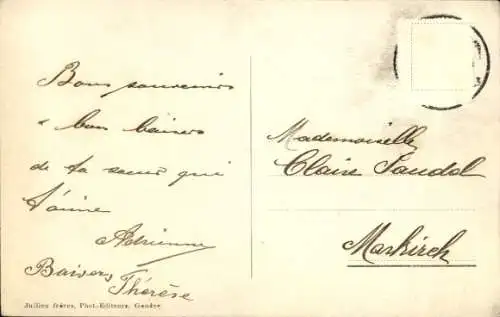 Bons souvenirs
& bons baisers
de ta sœur qui
t'aime
Adrienne
Baisers
Thérèse
Jullien frères, Phot.-Editeurs, Genève
Mademoiselle
Claire Sandol
Markirch